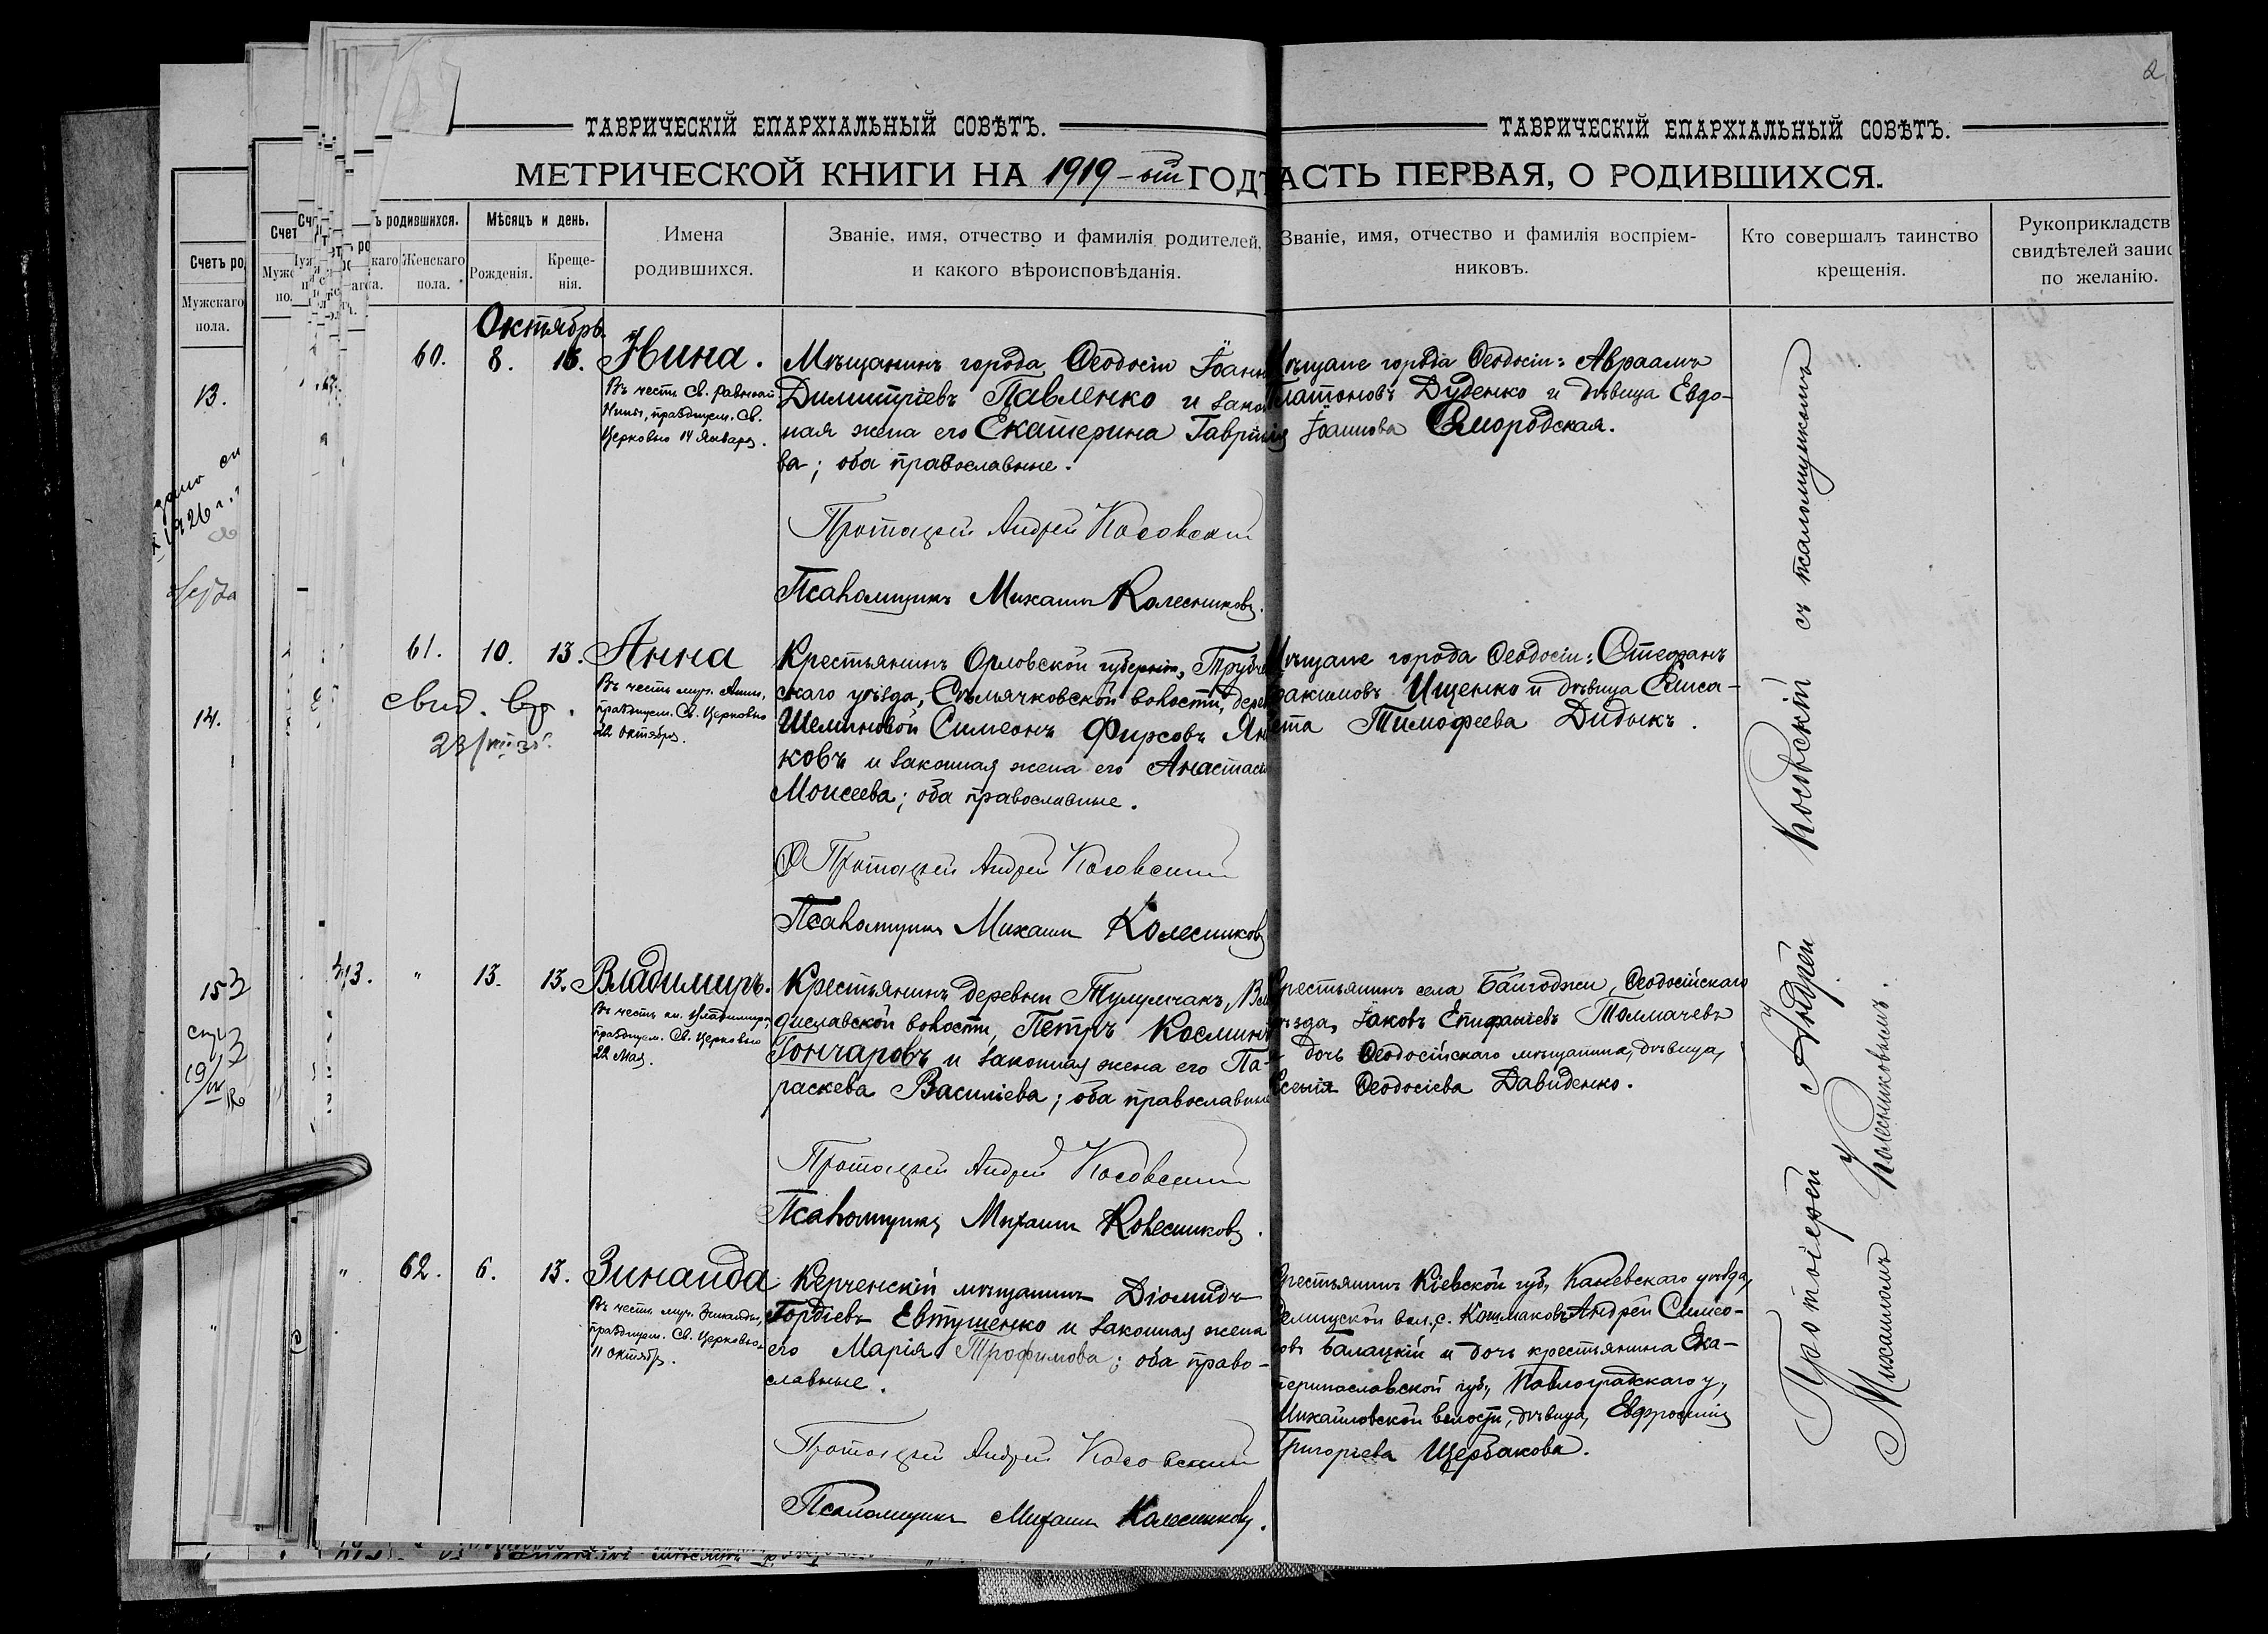 2
ТАВРИЧЕСКІЙ ЕПАРХІАЛЬНЫЙ СОВѢТЪ.
МЕТРИЧЕСКОЙ КНИГИ НА 1919-ый ГОДЪ
Счетъ ро
Мужскаго
пола.
Счет
ъ родившихся.
Женскаго
пола.
Мѣсяцъ и день.
Рожденія.
Креще-
нія.
Имена
родившихся.
Званіе, имя, отчество и фамилія родителей,
и какого вѣроисповѣданія.
13.
1926 г.
14.
Октябрь
60.
8.
13.
Нина.
Въ честь Св. равноап.
Нины, празднуем. Св.
Церковью 14 Января.
Мѣщанинъ города Ѳеодосіи Іоанн
Димитріевъ Павленко и закон
ная жена его Екатерина Гавріил
ва; оба православные.
Протоіерей Андрей Косовскій
Псаломщикъ Михаилъ Колесниковъ.
61.
10.
13.
Анна
Въ честь муч. Анны,
празднуем. Св. Церковью
22 октября.
Крестьянинъ Орловской губерніи, Трубче
скаго уѣзда, Семячковской волости, дерев
Шеминовой Симеонъ Фирсовъ Ян
ковъ и законная жена его Анастасія
Моисеева; оба православные.
Протоіерей Андрей Косовскій
Псаломщикъ Михаилъ Колесниковъ
13.
"
13.
13.
Владимиръ.
Въ честь кн. Владимира,
празднуем. Св. Церковью
22 Мая.
Крестьянинъ деревни Тулумчакъ, Вла
диславской волости, Петръ Косминъ
Гончаровъ и законная жена его Па-
раскева Василіева; оба православные
Протоіерей Андрей Косовскій
Псаломщикъ Михаилъ Колесниковъ.
"
62.
6.
13.
Зинаида
Въ честь муч. Зинаиды,
празднуем. Св. Церковью
11 октябр.
Керченскій мѣщанинъ Діомидъ
Гордіевъ Евтушенко и законная жена
его Марія Трофимова; оба право-
славные.
Протоіерей Андрей Косовскій
Псаломщикъ Михаилъ Колесниковъ.
ТАВРИЧЕСКІЙ ЕПАРХІАЛЬНЫЙ СОВѢТЪ.
АСТЬ ПЕРВАЯ, О РОДИВШИХСЯ.
Званіе, имя, отчество и фамилія воспріем-
никовъ.
Кто совершалъ таинство
крещенія.
Рукоприкладств
свидѣтелей запис
по желанію.
Мѣщане города Ѳеодосіи: Авраамъ
Платоновъ Дуденко и дѣвица Евдо-
кія Іоаннова Смородская.
Мѣщане города Ѳеодосіи: Стефанъ
Іоакимовъ Ищенко и дѣвица Елиса-
вета Тимофеева Дидыкъ.
Крестьянинъ села Байгоджи, Ѳеодосійскаго
уѣзда, Іаковъ Епифаніевъ Толмачевъ
и дочь Ѳеодосійскаго мѣщанина, дѣвица,
Ксенія Ѳеодосіева Давиденко.
Крестьянинъ Кіевской губ., Каневскаго уѣзда,
вол., с. Кошмаковъ Андрей Симео-
новъ Балацкій и дочь крестьянина Ека-
теринославской губ., Павлоградскаго у.,
Михайловской волости, дѣвица, Евфросинія
Григоріева Щербакова.
Протоіерей Андрей Косовскій съ псаломщикомъ
Михаиломъ Колесниковымъ.